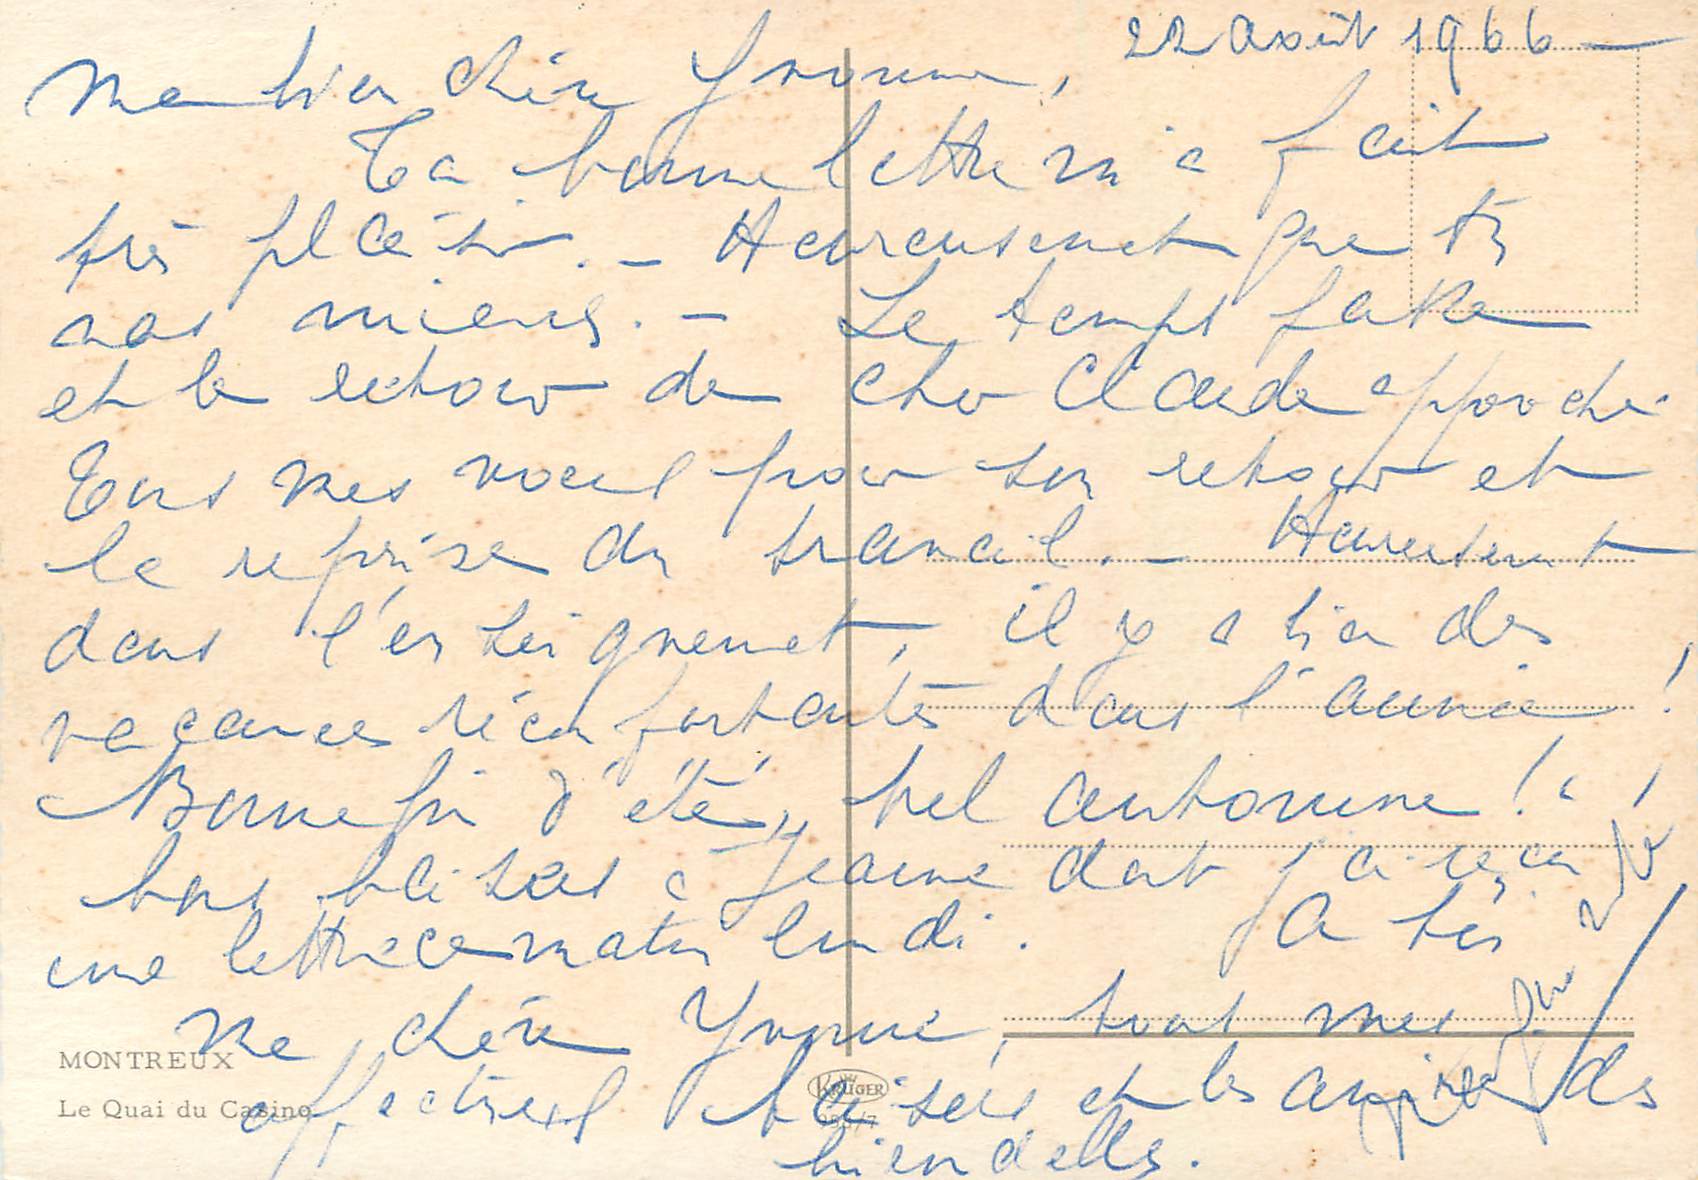 22 août 1966 —
Ma bien chère Yvonne,
Ta bonne lettre m'a fait
très plaisir. — Heureusement que tu
vas mieux. — Le temps passe
et le retour de cher Claude approche.
Tous mes voeux pour son retour et
la reprise du travail. — Heureusement
dans l'enseignement, il y a bien des
vacances réconfortantes dans l'année !
Bonne fin d'été, bel automne !
bons baisers à Jeanne dont j'ai reçu
une lettre ce matin lundi. A toi
Ma chère Yvonne, tous mes
affectueux baisers et les amitiés des
MONTREUX
Le Quai du Casino
KRUGER